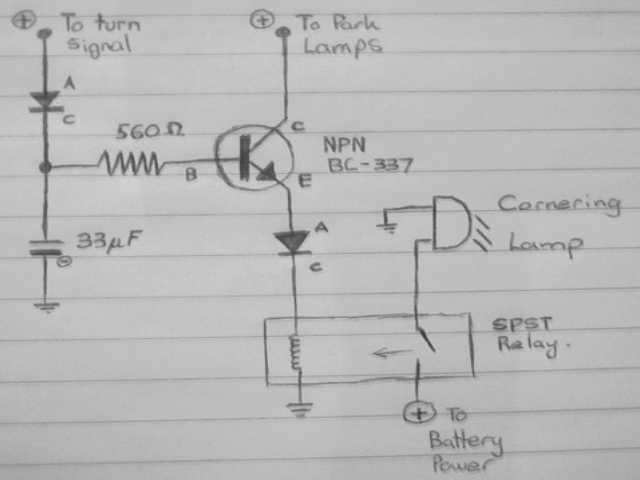 ⊕ To turn
signal
⊕ To Park
Lamps
A
C
560Ω
B
C
E
NPN
BC-337
33µF
⊖
A
C
Cornering
Lamp
SPST
Relay.
⊕ To
Battery
Power